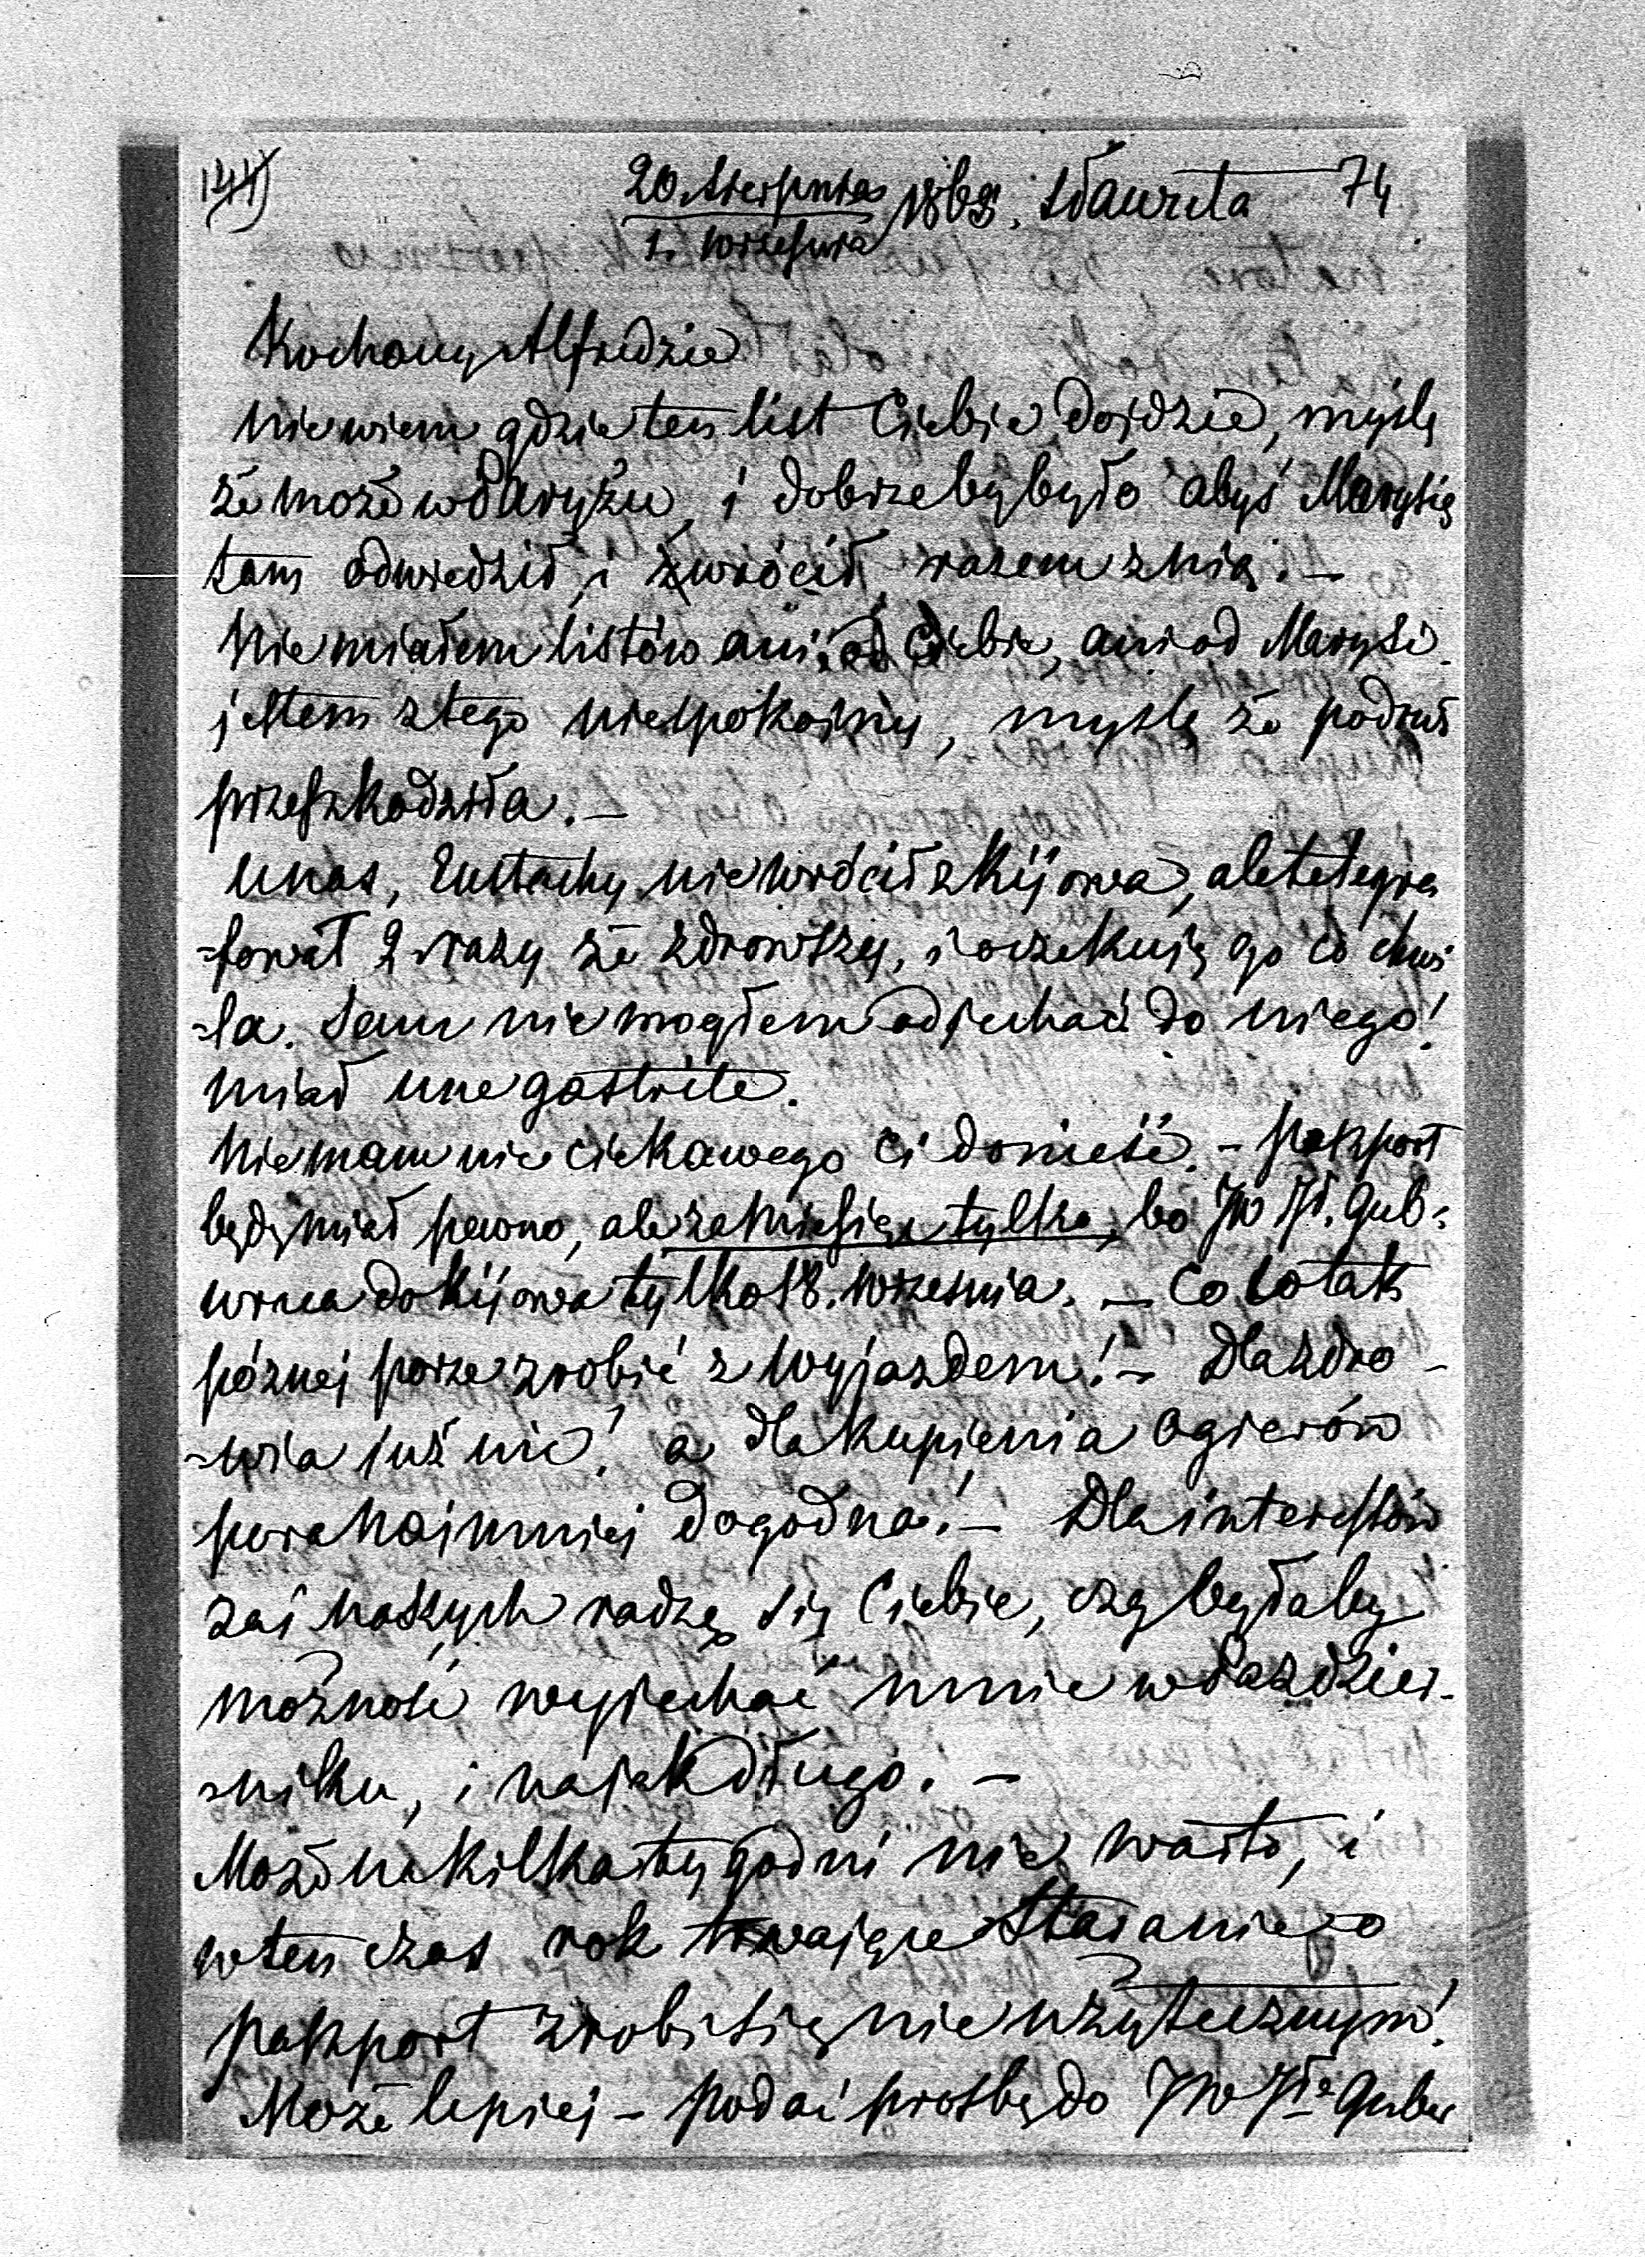 144) 20. Sierpnia 1868. Sławuta 74
1. Września
Kochany Alfredzie
nie wiem gdzie ten list Ciebie dojdzie, myślę
że może w Paryżu, i dobrze by było abyś Marysię
tam odwiedził, i wrócił razem z nią. —
Nie miałem listów ani od Ciebie, ani od Marysi
jestem z tego niespokojny, myślę że podróż
przeszkodziła. —
U nas, Eustachy nie wrócił z Kijowa, ale telegra
-fował 2 razy że zdrowszy, i oczekuję go co chwi
-la. Sam nie mogłem odjechać do niego!
miał une gastrite.
Nie mam nic ciekawego Ci donieść. — paszport
będę miał pewno, ale za miesiąc tylko, bo JW Jł. Gub:
wraca do Kijowa tylko 18. Września. — Co to tak
póznej porze zrobić z wyjazdem! — Dla zdro-
-wia już nic! a dla kupienia Ogierów
pora najmniej dogodna! — Dla interessów
zaś naszych radzę się Ciebie, czy byłaby
możność wyjechać mnie w Paździer-
-niku, i na jak długo. —
Może na kilka tygodni nie warto, i
wten czas rok trwające staranie o
paszport zrobi się nie użytecznym!
Może lepiej — podać prosbę do JW Jła Guber